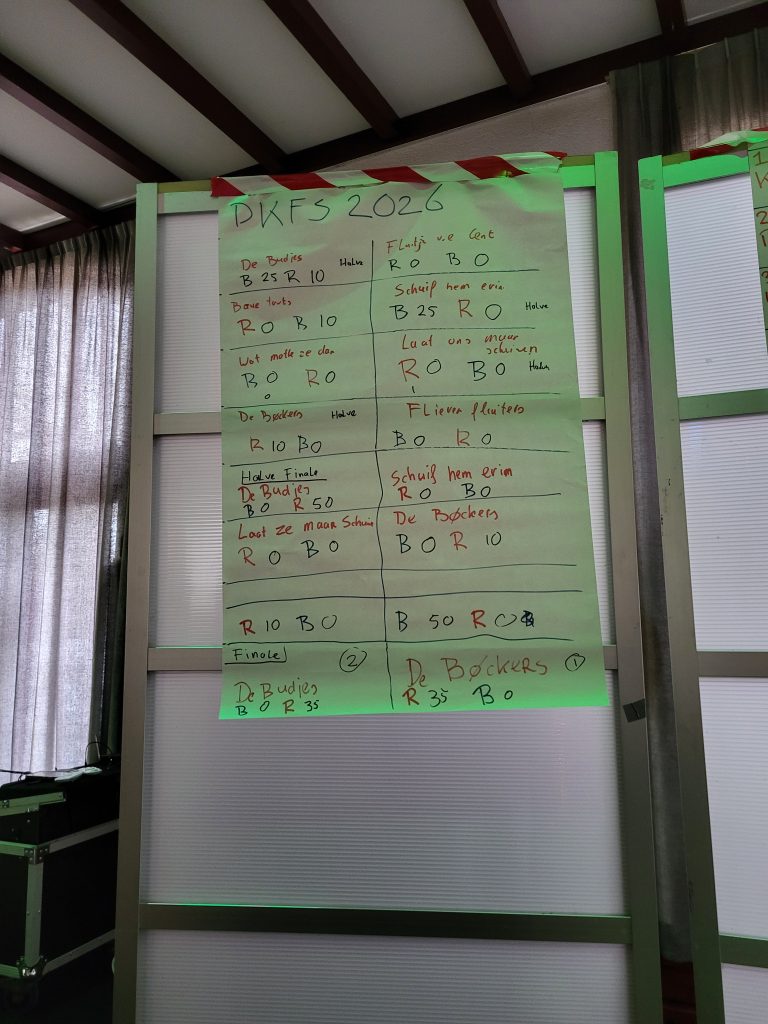 DKFS 2026
De Budjes Halve
B 25 R 10
Fluitje v.e Cent
R 0 B 0
R 0 B 10
Schuif hem erin
B 25 R 0 Halve
Wat motte ze dan
B 0 R 0
Laat ons maar
schuiven
R 0 B 0 Halve
De Bøckers Halve
R 10 B 0
FLieren fluiters
B 0 R 0
Halve Finale
De Budjes
B 0 R 50
Schuif hem erin
R 0 B 0
Laat ze maar Schuiv
R 0 B 0
De Bøckers
B 0 R 10
R 10 B 0
B 50 R 0
Finale
2
De Budjes
B 0 R 35
De Bøckers 1
R 35 B 0
1
K
2